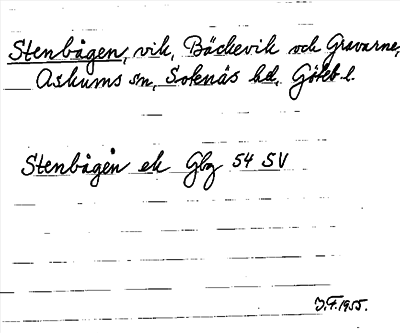 Stenbågen, vik, Bäckevik och Gravarne,
Askums sn, Sotenäs hd, Göteb. l.
Stenbågen ek Gbg 54 SV
J.F. 1955.